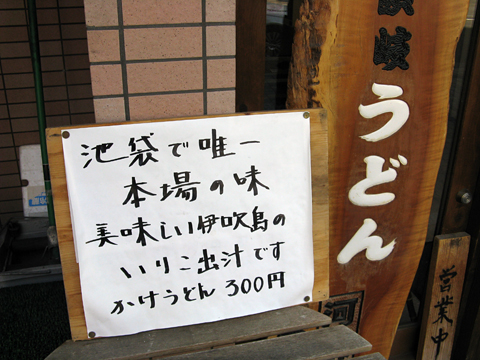 池袋で唯一
本場の味
美味しい伊吹島の
いりこ出汁です
かけうどん 300円
岐うどん
営業中